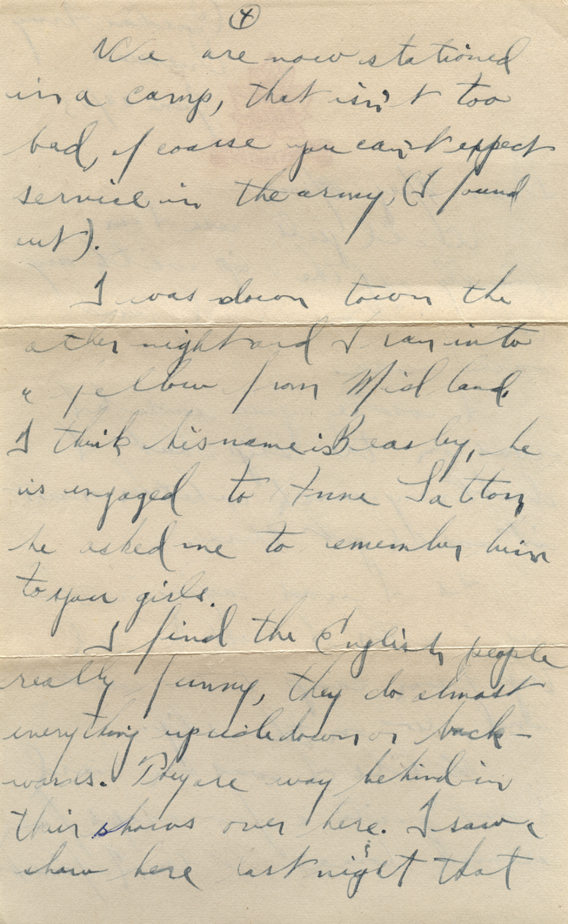 4
We are now stationed
in a camp, that isn't too
bad, of coarse you can't expect
service in the army, (I found
out).
I was down town the
other night and I ran into
a fellow from Midland,
I think his name is Beasley, he
is engaged to Anne
he asked me to remember him
to your girls.
I find the English people
really funny, they do almost
everything upside down or back-
wards. They are way behind in
their shows over here. I saw a
show here last night that